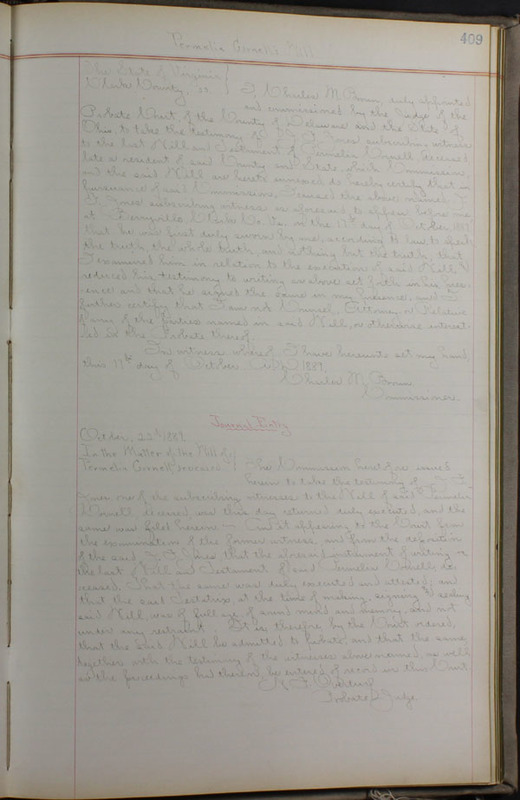 409
Permelia Cornell's Will
The State of Virginia
Clarke County, ss. I Charles M. Brown, duly appointed
and commissioned by the Judge of the
Probate Court, of the County of Delaware and the State of
Ohio, to take the testimony of F. Jones subscribing witness
to the last Will and Testament of Permelia Cornell deceased
late a resident of said County and State which Commission,
and the said Will are hereto annexed do hereby certify that in
pursuance of said Commission, I caused the above named
F. Jones subscribing witness as aforesaid to appear before me
at Berryville, Clarke Co. Va. on the 17th day of October, 1889
that he was first duly sworn by me, according to law to speak
the truth, the whole truth, and nothing but the truth, that
I examined him in relation to the execution of said Will &
reduced his testimony to writing as above set forth in his pres-
ence and that he signed the same in my presence, and I
further certify that I am not Counsel, Attorney or Relative
of any of the parties named in said Will, or otherwise interest-
ed in the Probate thereof.
In witness whereof I have hereunto set my hand,
this 17th day of October A.D. 1889.
Charles M. Brown
Commissioner
Journal Entry
October, 22d 1889.
In the Matter of the Will of
Permelia Cornell deceased The Commission heretofore issued
herein to take the testimony of F.
Jones one of the subscribing witnesses to the Will of said Permelia
Cornell deceased was this day returned duly executed, and the
same was filed herein — And it appearing to the Court from
the examination of the former witness, and from the deposition
of the said F. Jones that the aforesaid instrument of writing is
the last Will and Testament of said Permelia Cornell de-
ceased, That the same was duly executed and attested, and
that the said Testatrix, at the time of making, signing & sealing
said Will, was of full age, of sound mind and memory, and not
under any restraint. It is therefore by the Court ordered,
that the said Will be admitted to probate, and that the same
together with the testimony of the witnesses above named, as well
as the proceedings had therein, be entered of record in this Court
Probate Judge